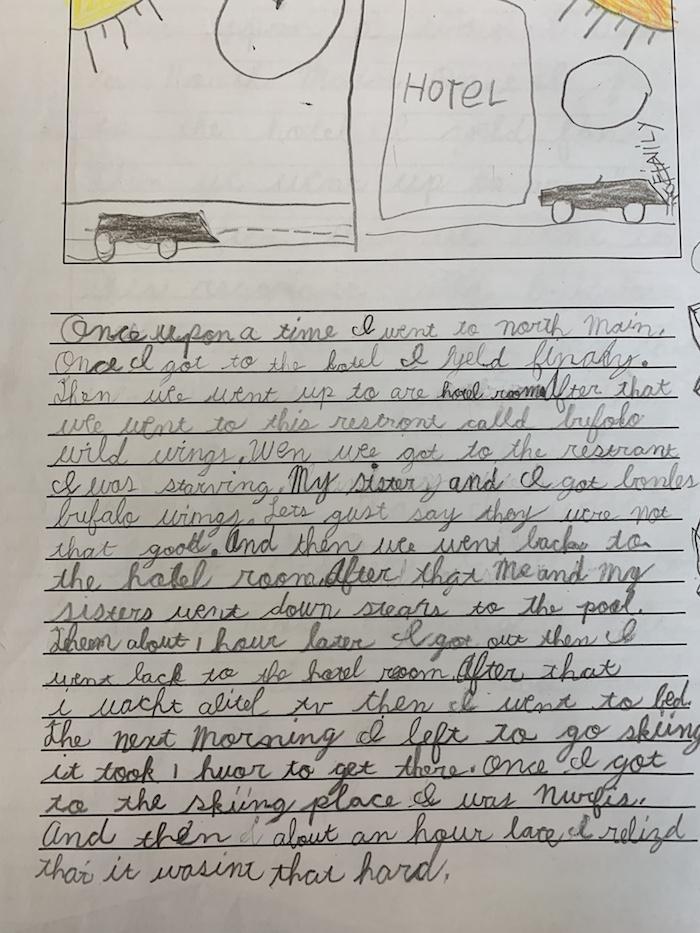 HOTEL
FAMILY
Once upon a time I went to north main.
Once I got to the hotel I yeld finaly.
Then we went up to are hotel room After that
we went to this restront calld bufolo
wild wings. Wen we got to the restrant
I was starving. My sister and I got bonles
bufalo wings. Lets gust say they were not
that good. And then we went back to
the hotel room. After that me and my
sisters went down stears to the pool.
Them about 1 hour later I got out then I
went back to the hotel room. After that
i wacht alitel tv then I went to bed.
The next morning I left to go skiing
it took 1 huor to get there. Once I got
to the skiing place I was nurfis.
And then about an hour late I relizd
that it wasint that hard.